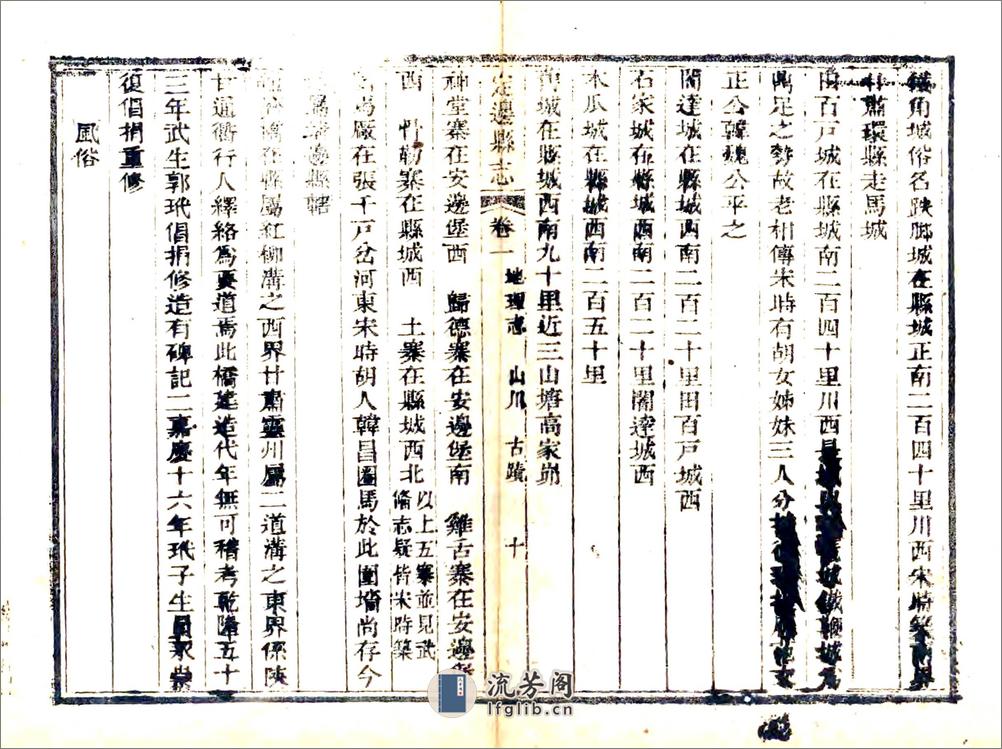 鐵角城俗名跌脚城在縣城正南二百四十里川西宋時築南與
甘肅環縣走馬城
田百戸城在縣城南二百四十里川西與鐵鞭城為
鼎足之勢故老相傳宋時有胡女姊妹三人分
正公韓魏公平之
閣達城在縣城西南二百二十里田百戸城西
石家城在縣城西南二百二十里閣達城西
木瓜城在縣城西南二百五十里
城在縣城西南九十里近三山塘高家峁
定邊縣志 卷一 地理志 山川 古蹟 十
神堂寨在安邊堡西 歸德寨在安邊堡南 雞舌寨在安邊堡
西 寨在縣城西 土寨在縣城西北以上五寨並見武
備志疑皆宋時築
馬廠在張千戸岔河東宋時胡人韓昌圈馬於此圍墻尚存今
屬 邊縣轄
橋在縣屬紅柳溝之西界甘肅靈州屬二道溝之東界係陝
甘通衢行人繹絡為要道焉此橋建造代年無可稽考乾隆五十
三年武生郭玳倡捐修造有碑記二嘉慶十六年玳子生員
復倡捐重修
風俗
流芳阁
lfglib.cn